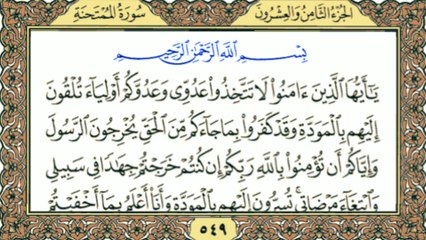 سُورَةُ المُمْتَحنَةِ
الجُزْءُ الثَّامِنُ وَالعِشْرُونَ
بِسْمِ اللَّهِ الرَّحْمَٰنِ الرَّحِيمِ
يَٰٓأَيُّهَا ٱلَّذِينَ ءَامَنُوا۟ لَا تَتَّخِذُوا۟ عَدُوِّى وَعَدُوَّكُمْ أَوْلِيَآءَ تُلْقُونَ
إِلَيْهِم بِٱلْمَوَدَّةِ وَقَدْ كَفَرُوا۟ بِمَا جَآءَكُم مِّنَ ٱلْحَقِّ يُخْرِجُونَ ٱلرَّسُولَ
وَإِيَّاكُمْ أَن تُؤْمِنُوا۟ بِٱللَّهِ رَبِّكُمْ إِن كُنتُمْ خَرَجْتُمْ جِهَٰدًا فِى سَبِيلِى
وَٱبْتِغَآءَ مَرْضَاتِى تُسِرُّونَ إِلَيْهِم بِٱلْمَوَدَّةِ وَأَنَا۠ أَعْلَمُ بِمَآ أَخْفَيْتُمْ
٥٤٩